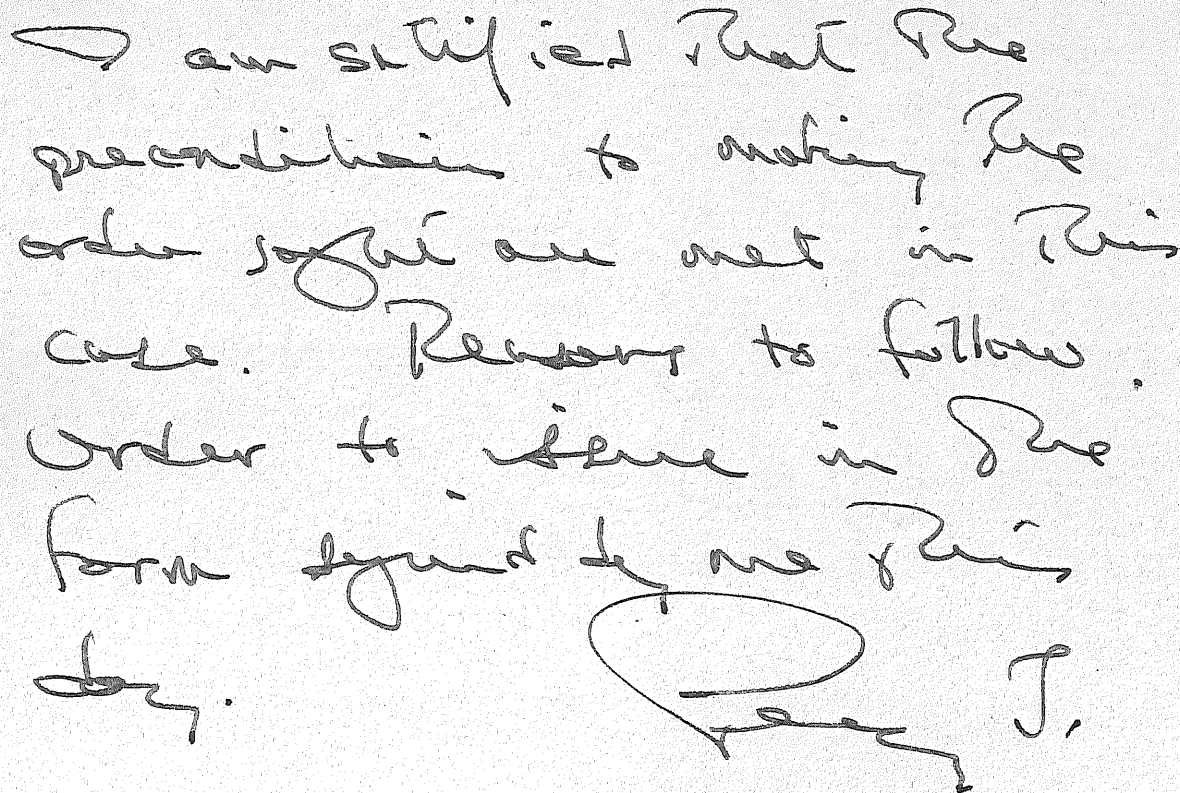 I am satisfied that the
preconditions to making the
order sought are met in this
case. Reasons to follow.
Order to issue in the
form signed by me this
day. J.